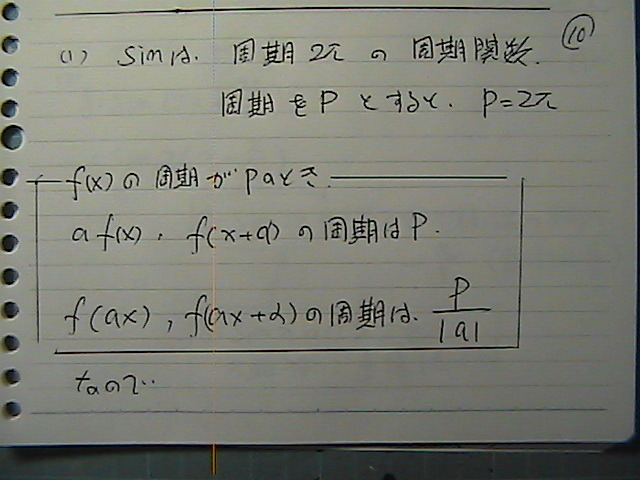 (10)
(1) sinは、周期2πの周期関数.
周期をPとすると、P=2π
f(x)の周期がPのとき.
a f(x), f(x+α)の周期はP.
f(ax), f(ax+α)の周期は、P/|a|
なので…